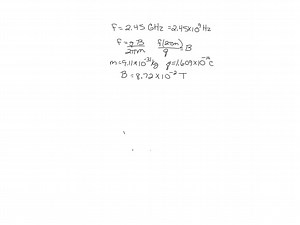 f = 2.45 GHz = 2.45x10⁹ Hz
f = qB/2πm f(2πm)/q = B
m = 9.11x10⁻³¹ kg q = 1.609x10⁻¹⁹ C
B = 8.72 x 10⁻² T